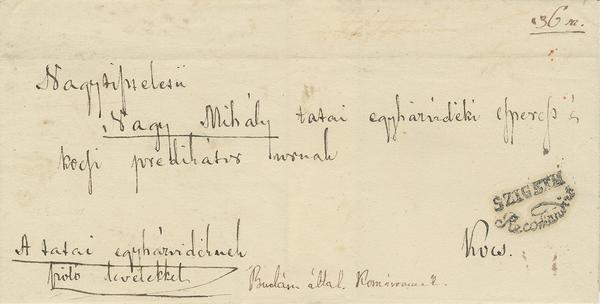 36 x.
Nagytiszteletű
Nagy Mihály tatai egyházvidéki esperes és
kocsi predikátor urnak
SZIGETH
Recomandirt
Kocs.
A tatai egyházvidéknek
szóló levelekkel
Budán által.